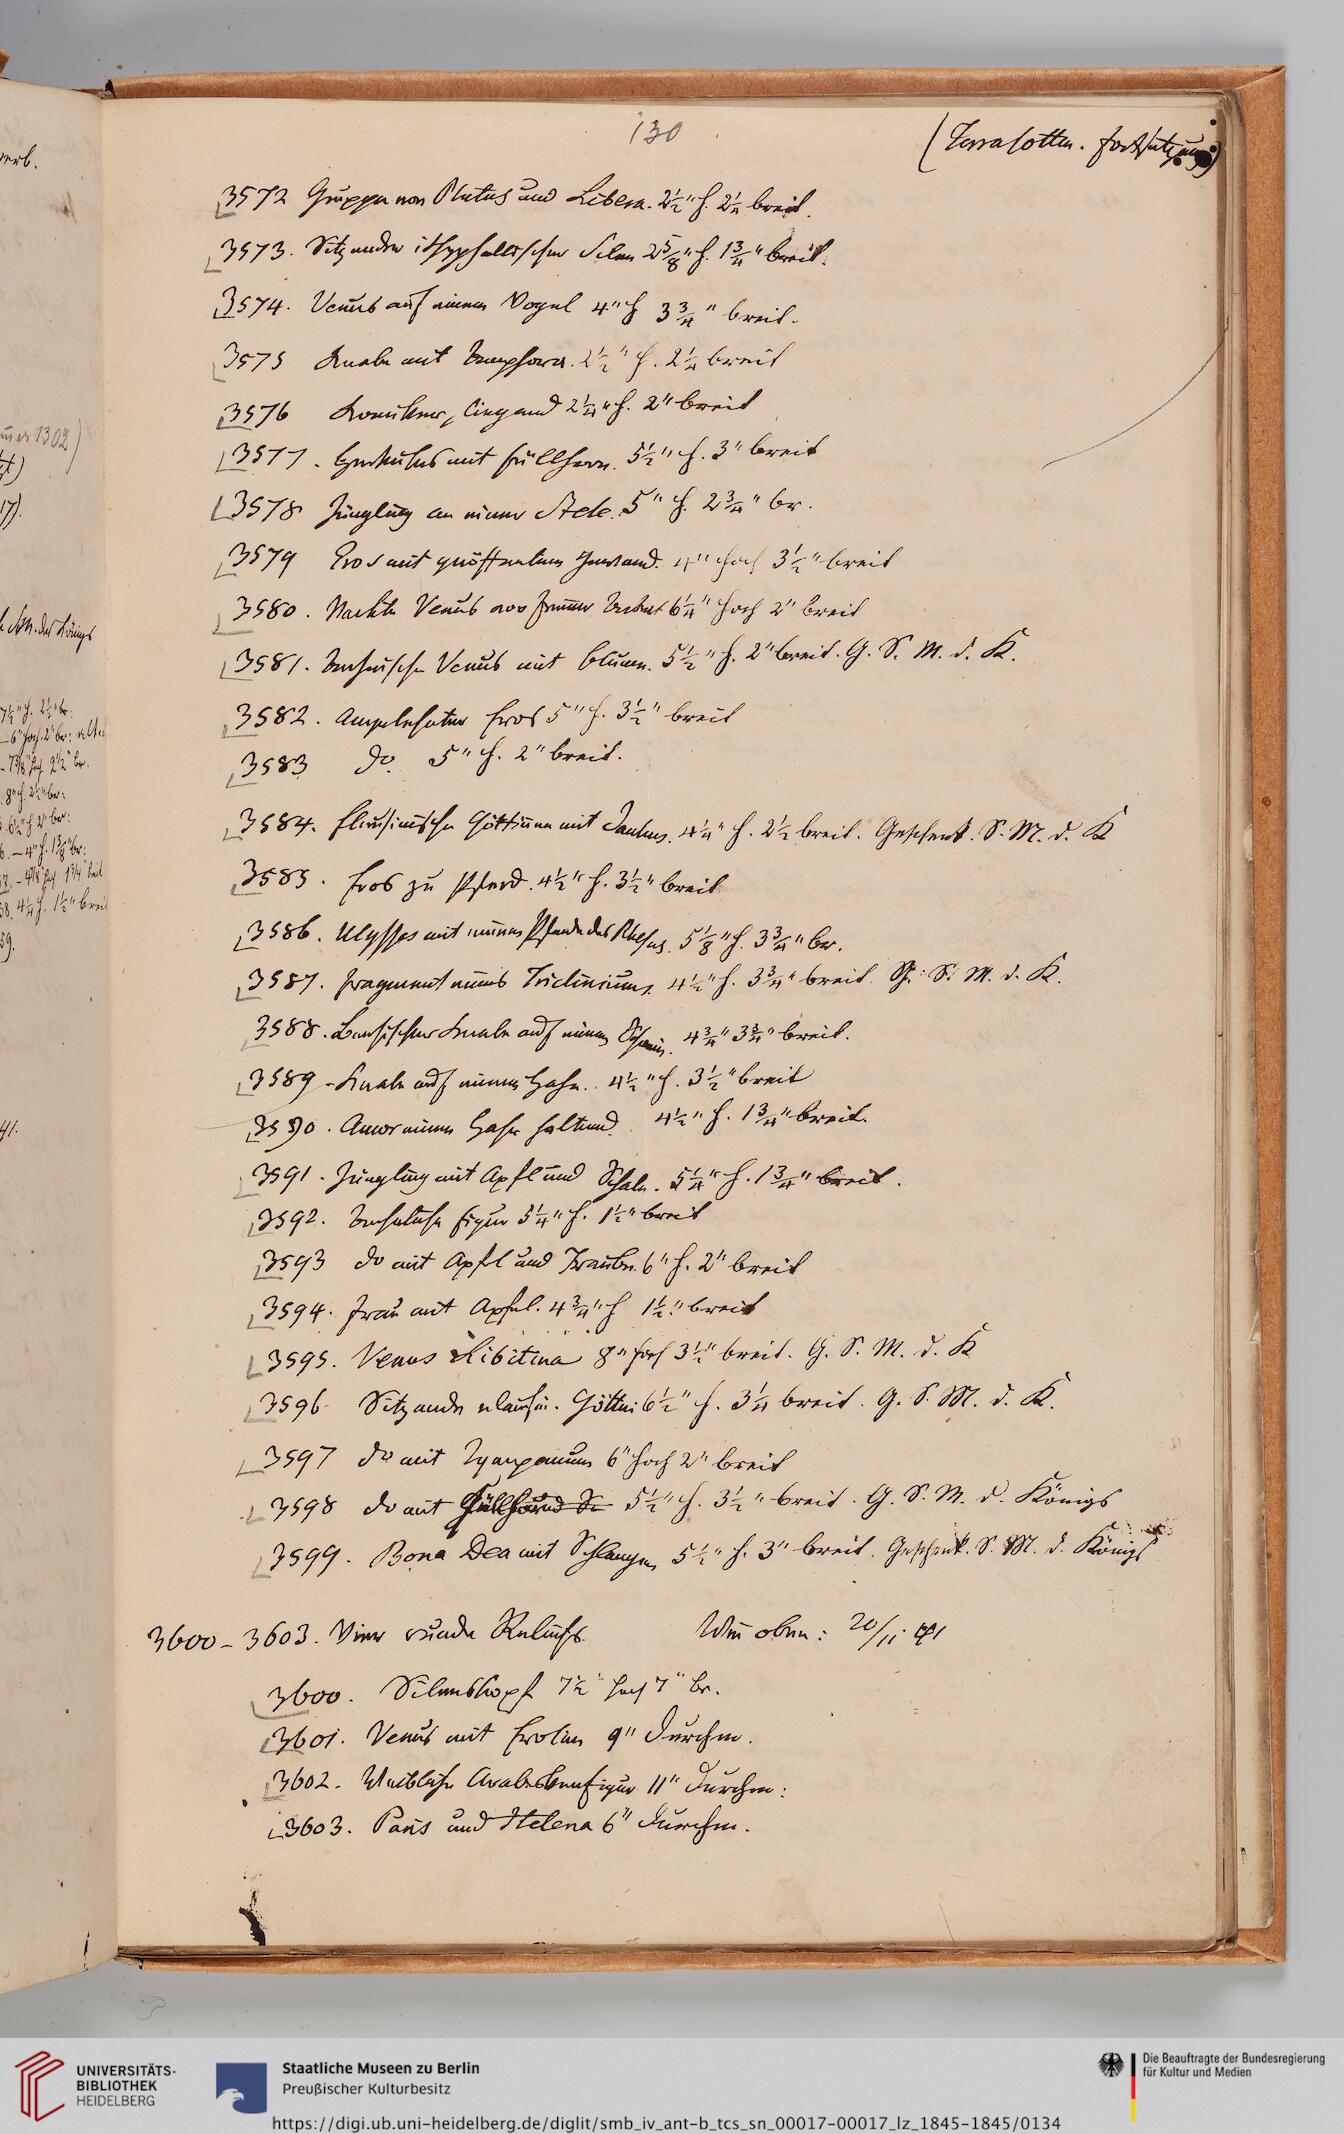 130
(Terracotten. Fortsetzung)
3572 Gruppe von Plutus und Libera. 2½" h. 2¼ breit.
3573. Sitzender ithyphallischer Silen 2⅝" h. 1¾" breit.
3574. Venus auf einem Vogel 4" h 3¾" breit.
3575 Knabe mit Amphora. 2½" h. 2¼ breit
3576 Komiker, liegend 2¼" h. 2" breit
3577. Herkules mit Füllhorn. 5½" h. 3" breit
3578 Jüngling an einer Stele. 5" h. 2¾" br.
3579 Eros mit geöffnetem Gewand. 4" hoch 3½" breit
3580. Nackte Venus 6¼" hoch 2" breit
3581. Venus mit Blume. 5½" h. 2" breit. G. S. M. d. K.
3582. Eros 5" h. 3½" breit
3583 do. 5" h. 2" breit.
3584. Eleusinische Göttinn mit 4¼" h. 2½ breit. Geschenk. S. M. d. K
3585. Eros zu Pferd. 4½" h. 3½" breit
3586. Ulysses mit einem Pferde des Rhesus. 5⅛" h. 3¾" br.
3587. Fragment eines Tricliniums. 4½" h. 3¾" breit G. S. M. d. K.
3588. Bacchischer Knabe auf einem Schwein. 4¾" 3¾" breit.
3589. Knabe auf einem Hahn. 4½" h. 3½" breit
3590. Amor einen Hasen haltend. 4½" h. 1¾" breit.
3591. Jüngling mit Apfel und Schale. 5¼" h. 1¾" breit.
3592. Figur 5¼" h. 1½" breit
3593 do mit Apfel und Traube. 6" h. 2" breit
3594. Frau mit Apfel. 4¾" h 1½" breit
3595. Venus Libitina 8" hoch 3½" breit. G. S. M. d. K
3596 Sitzende eleusin. Göttin 6½" h. 3¼ breit. G. S. M. d. K.
3597 do mit Tympanum 6" hoch 2" breit
3598 do mit Füllhorn 5½" h. 3½" breit. G. S. M. d. Königs
3599. Bona Dea mit Schlangen 5½" h. 3" breit. Geschenk. S. M. d. Königs
3600 – 3603. Vier runde Reliefs. Wie oben: 20/11 41
3600. Silenskopf 7½" hoch 7" br.
3601. Venus mit Eroten 9" Durchm.
3602. Weibliche Arabeskenfigur 11" Durchm:
3603. Paris und Helena 6" Durchm.
erb.
1302)
17).
Sm. des Königs
59.
41.
UNIVERSITÄTS-
BIBLIOTHEK
HEIDELBERG
Staatliche Museen zu Berlin
Preußischer Kulturbesitz
Die Beauftragte der Bundesregierung
für Kultur und Medien
https://digi.ub.uni-heidelberg.de/diglit/smb_iv_ant-b_tcs_sn_00017-00017_lz_1845-1845/0134